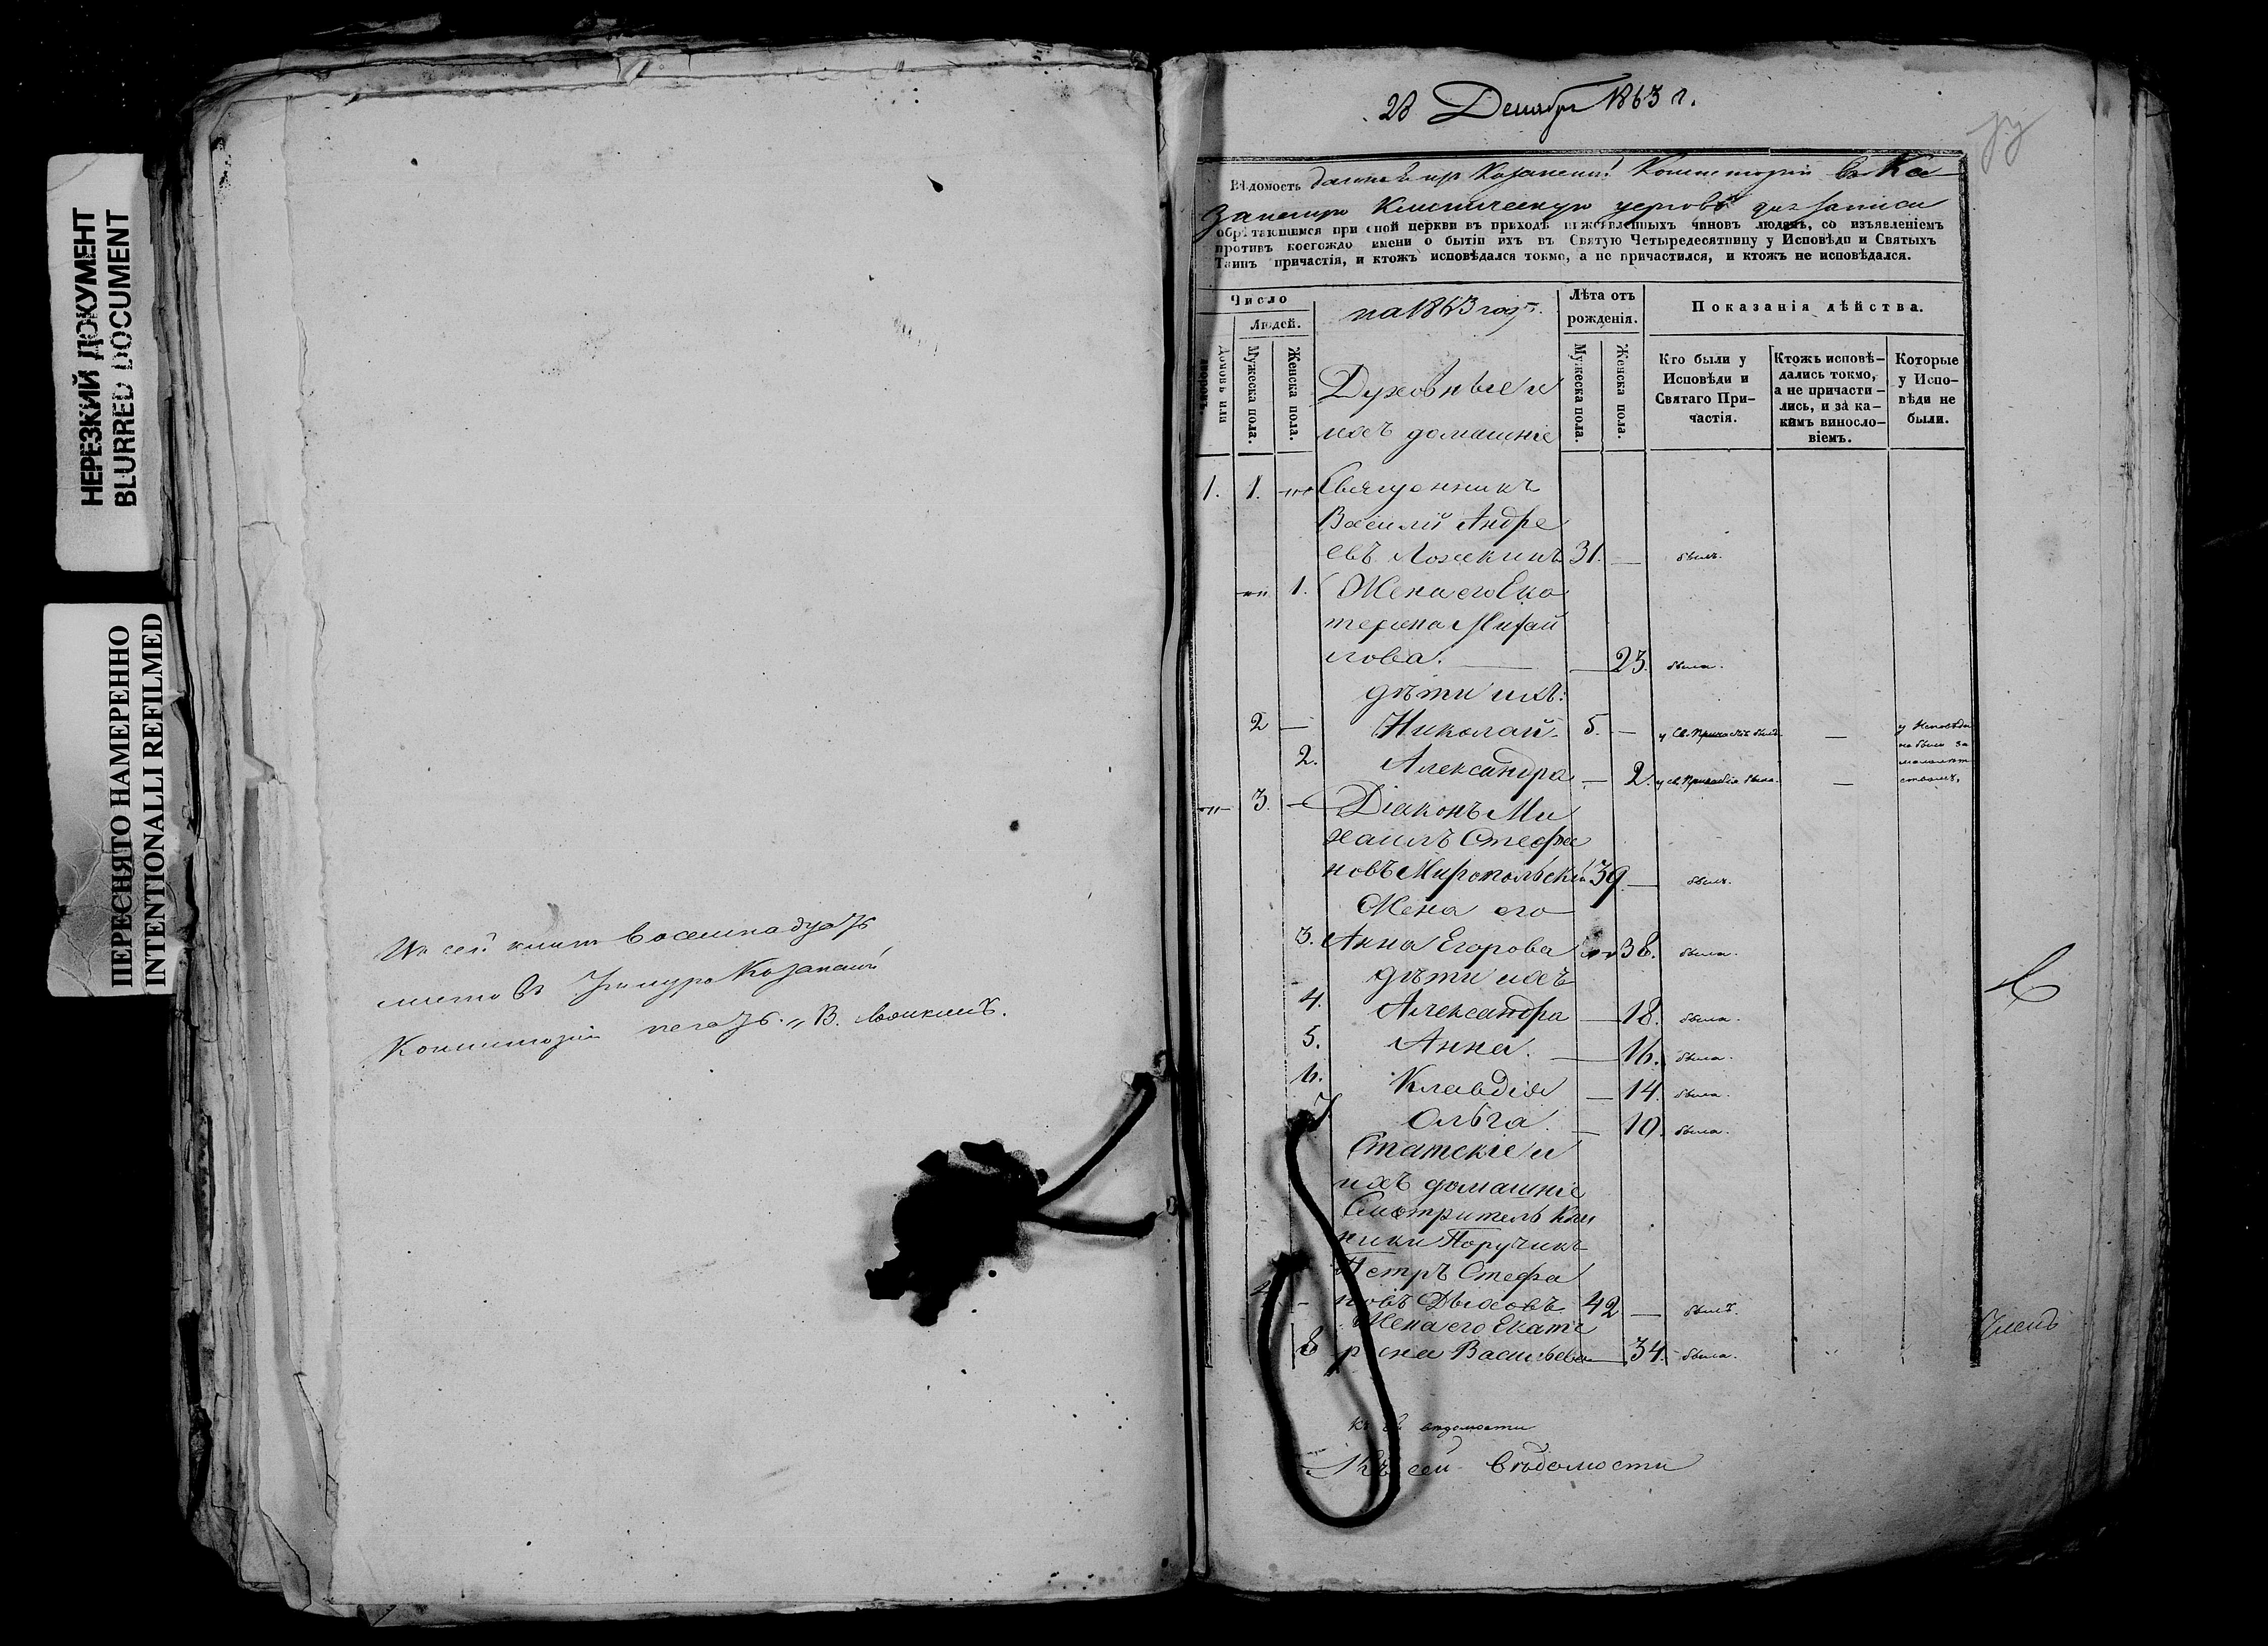 НЕРЕЗКИЙ ДОКУМЕНТ
BLURRED DOCUMENT
ПЕРЕСНЯТО НАМЕРЕННО
INTENTIONALLI REFILMED
Въ сей книгѣ восемнадцать
листовъ Казанской
Консисторіи печать. В.
28 Декабря 1863 г.
Вѣдомость данная изъ Казанской Консисторіи въ Ка
занскую Клиническую церковь для записи
обрѣтающимся при оной церкви въ приходѣ нижеявленныхъ чиновъ людямъ, со изъявленіемъ
противъ коегождо имени о бытіи ихъ въ Святую Четыредесятницу у Исповѣди и Святыхъ
Таинъ причастія, и ктожъ исповѣдался токмо, а не причастился, и ктожъ не исповѣдался.
Число
Людей.
Домовъ или
дворовъ.
Мужеска пола.
Женска пола.
на 1863 годъ.
Духовные и
ихъ домашніе
Лѣта отъ
рожденія.
Мужеска пола.
Женска пола.
Показанія дѣйства.
Кто были у
Исповѣди и
Святаго При-
частія.
Ктожъ исповѣ-
дались токмо,
а не причасти-
лись, и за ка-
кимъ винosло-
віемъ.
Которые
у Испо-
вѣди не
были.
1. 1. Священникъ
Василій Андре
евъ Ложкинъ 31. — былъ.
1. Жена его Ека
терина Михай
лова. — 23. была.
дѣти ихъ:
2 — Николай. 5. — у Св. Причастія былъ. — у Исповѣди
не были за
малолѣт
ствомъ.
2. Александра — 2. у Св. Причастія была. —
3. — Діаконъ Ми
хаилъ Стефа
новъ Миропольскій 39. — былъ.
Жена его
3. Анна Егорова 38. была.
дѣти ихъ
4. Александра — 18. была.
5. Анна. — 16. была.
6. Клавдія — 14. была.
7. Ольга. — 10. была.
Статскіе и
ихъ домашніе
Смотритель Кли
ники Поручикъ
Петръ Стефа
4 — новъ 42 — былъ.
Жена его Екате
8 рина Васильева — 34. была.
Къ сей вѣдомости
Къ сей вѣдомости